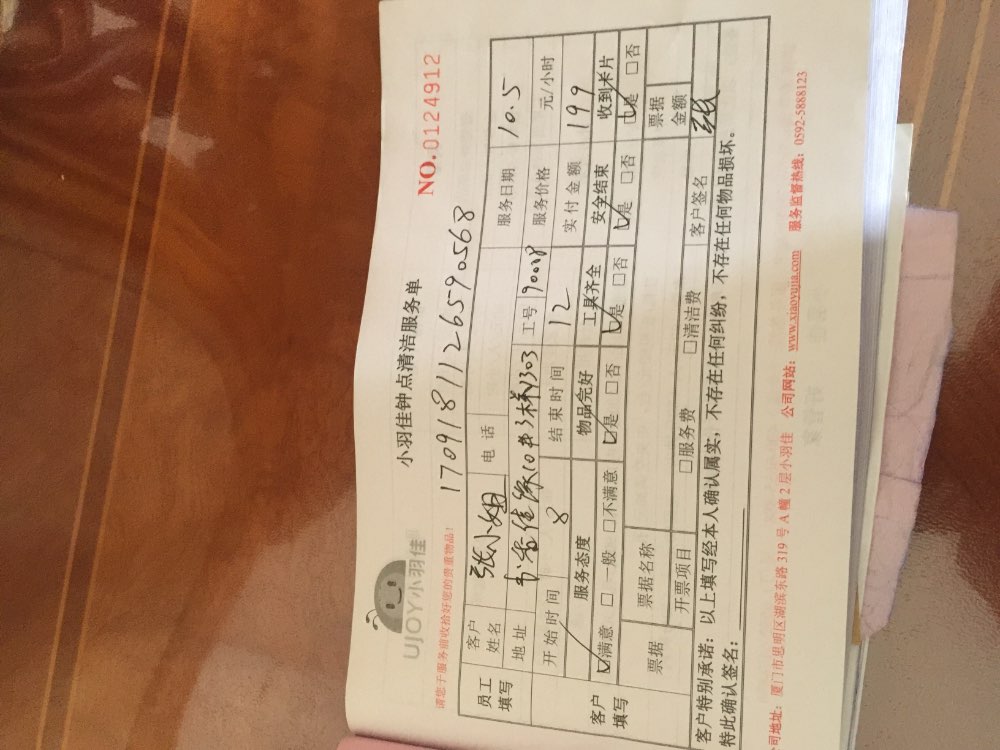 UJOY小羽佳
小羽佳钟点清洁服务单
NO.0124912
请您于服务前收拾好您的贵重物品!
1709181126590568
员工填写 客户姓名 张小姐 电话 服务日期 10.5
地址 佳缘10 303 工号 服务价格 元/小时
客户填写 开始时间 8 结束时间 12 实付金额 199
服务态度 物品完好 工具齐全 安全结束 收到米片
☑满意 □一般 □不满意 ☑是 □否 ☑是 □否 ☑是 □否 ☑是 □否
票据 票据名称 票据金额
开票项目 □服务费 □清洁费 客户签名 张
客户特别承诺:以上填写经本人确认属实,不存在任何纠纷,不存在任何物品损坏。
特此确认签名:
公司地址:厦门市思明区湖滨东路319号A幢2层小羽佳 公司网站:www.xiaoyujia.com 服务监督热线:0592-5888123